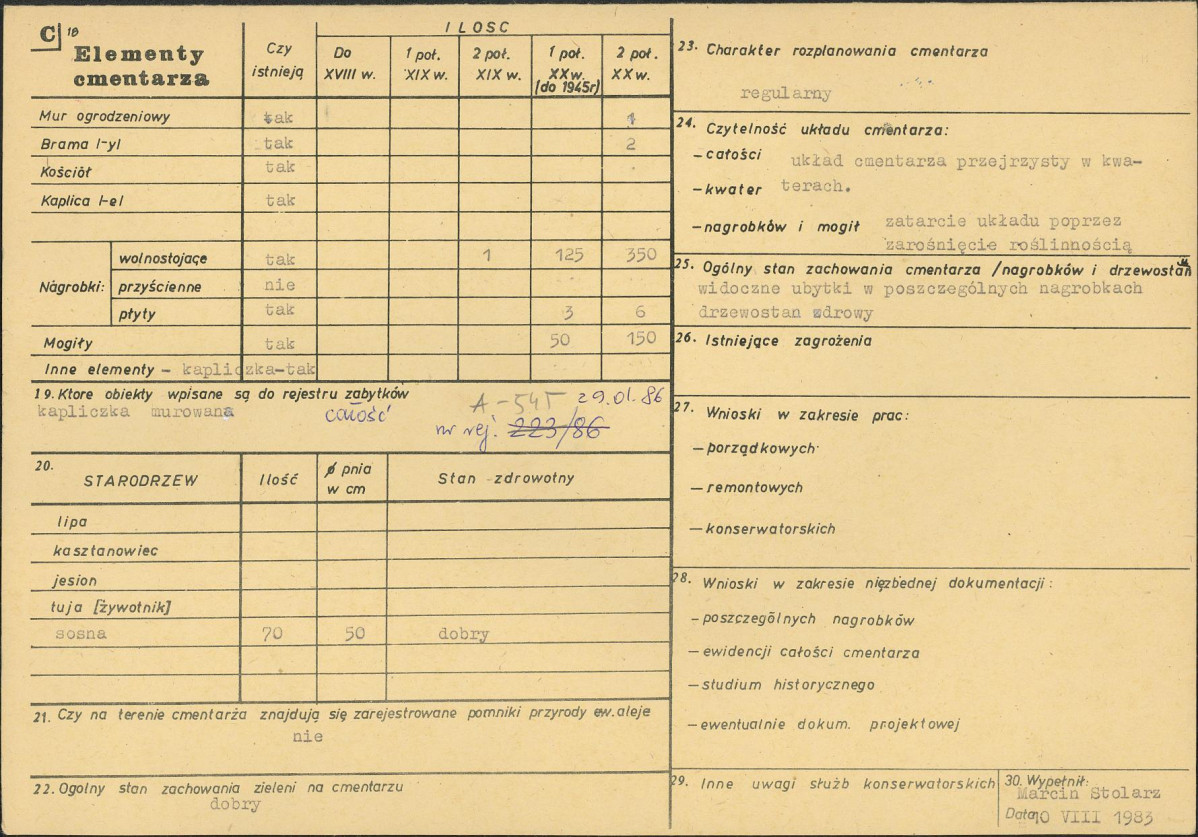 C 18
Elementy cmentarza
Czy istnieją
ILOSC
Do XVIII w.
1 poł. XIX w.
2 poł. XIX w.
1 poł. XX w. (do 1945r)
2 poł. XX w.
Mur ogrodzeniowy tak 1
Brama /-y/ tak 2
Kościół tak
Kaplica /-e/ tak
Nagrobki:
wolnostojące tak 1 125 350
przyścienne nie
płyty tak 3 6
Mogiły tak 50 150
Inne elementy - kapliczka-tak
19. Ktore obiekty wpisane są do rejestru zabytków
kapliczka murowana całość A-545 29.01.86
nr rej. 223/86
20.
STARODRZEW Ilość ø pnia w cm Stan zdrowotny
lipa
kasztanowiec
jesion
tuja [żywotnik]
sosna 70 50 dobry
21. Czy na terenie cmentarża znajdują się zarejestrowane pomniki przyrody ew. aleje
nie
22. Ogolny stan zachowania zieleni na cmentarzu
dobry
23. Charakter rozplanowania cmentarza
regularny
24. Czytelność układu cmentarza:
- całości układ cmentarza przejrzysty w kwa-
- kwater terach.
- nagrobków i mogił zatarcie układu poprzez
zarośnięcie roślinnością
25. Ogólny stan zachowania cmentarza /nagrobków i drzewostan
widoczne ubytki w poszczególnych nagrobkach
drzewostan zdrowy
26. Istniejące zagrożenia
27. Wnioski w zakresie prac:
- porządkowych
- remontowych
- konserwatorskich
28. Wnioski w zakresie nięzbędnej dokumentacji:
- poszczególnych nagrobków
- ewidencji całości cmentarza
- studium historycznego
- ewentualnie dokum. projektowej
29. Inne uwagi służb konserwatorskich
30. Wypełnił:
Marcin Stolarz
Data 10 VIII 1983